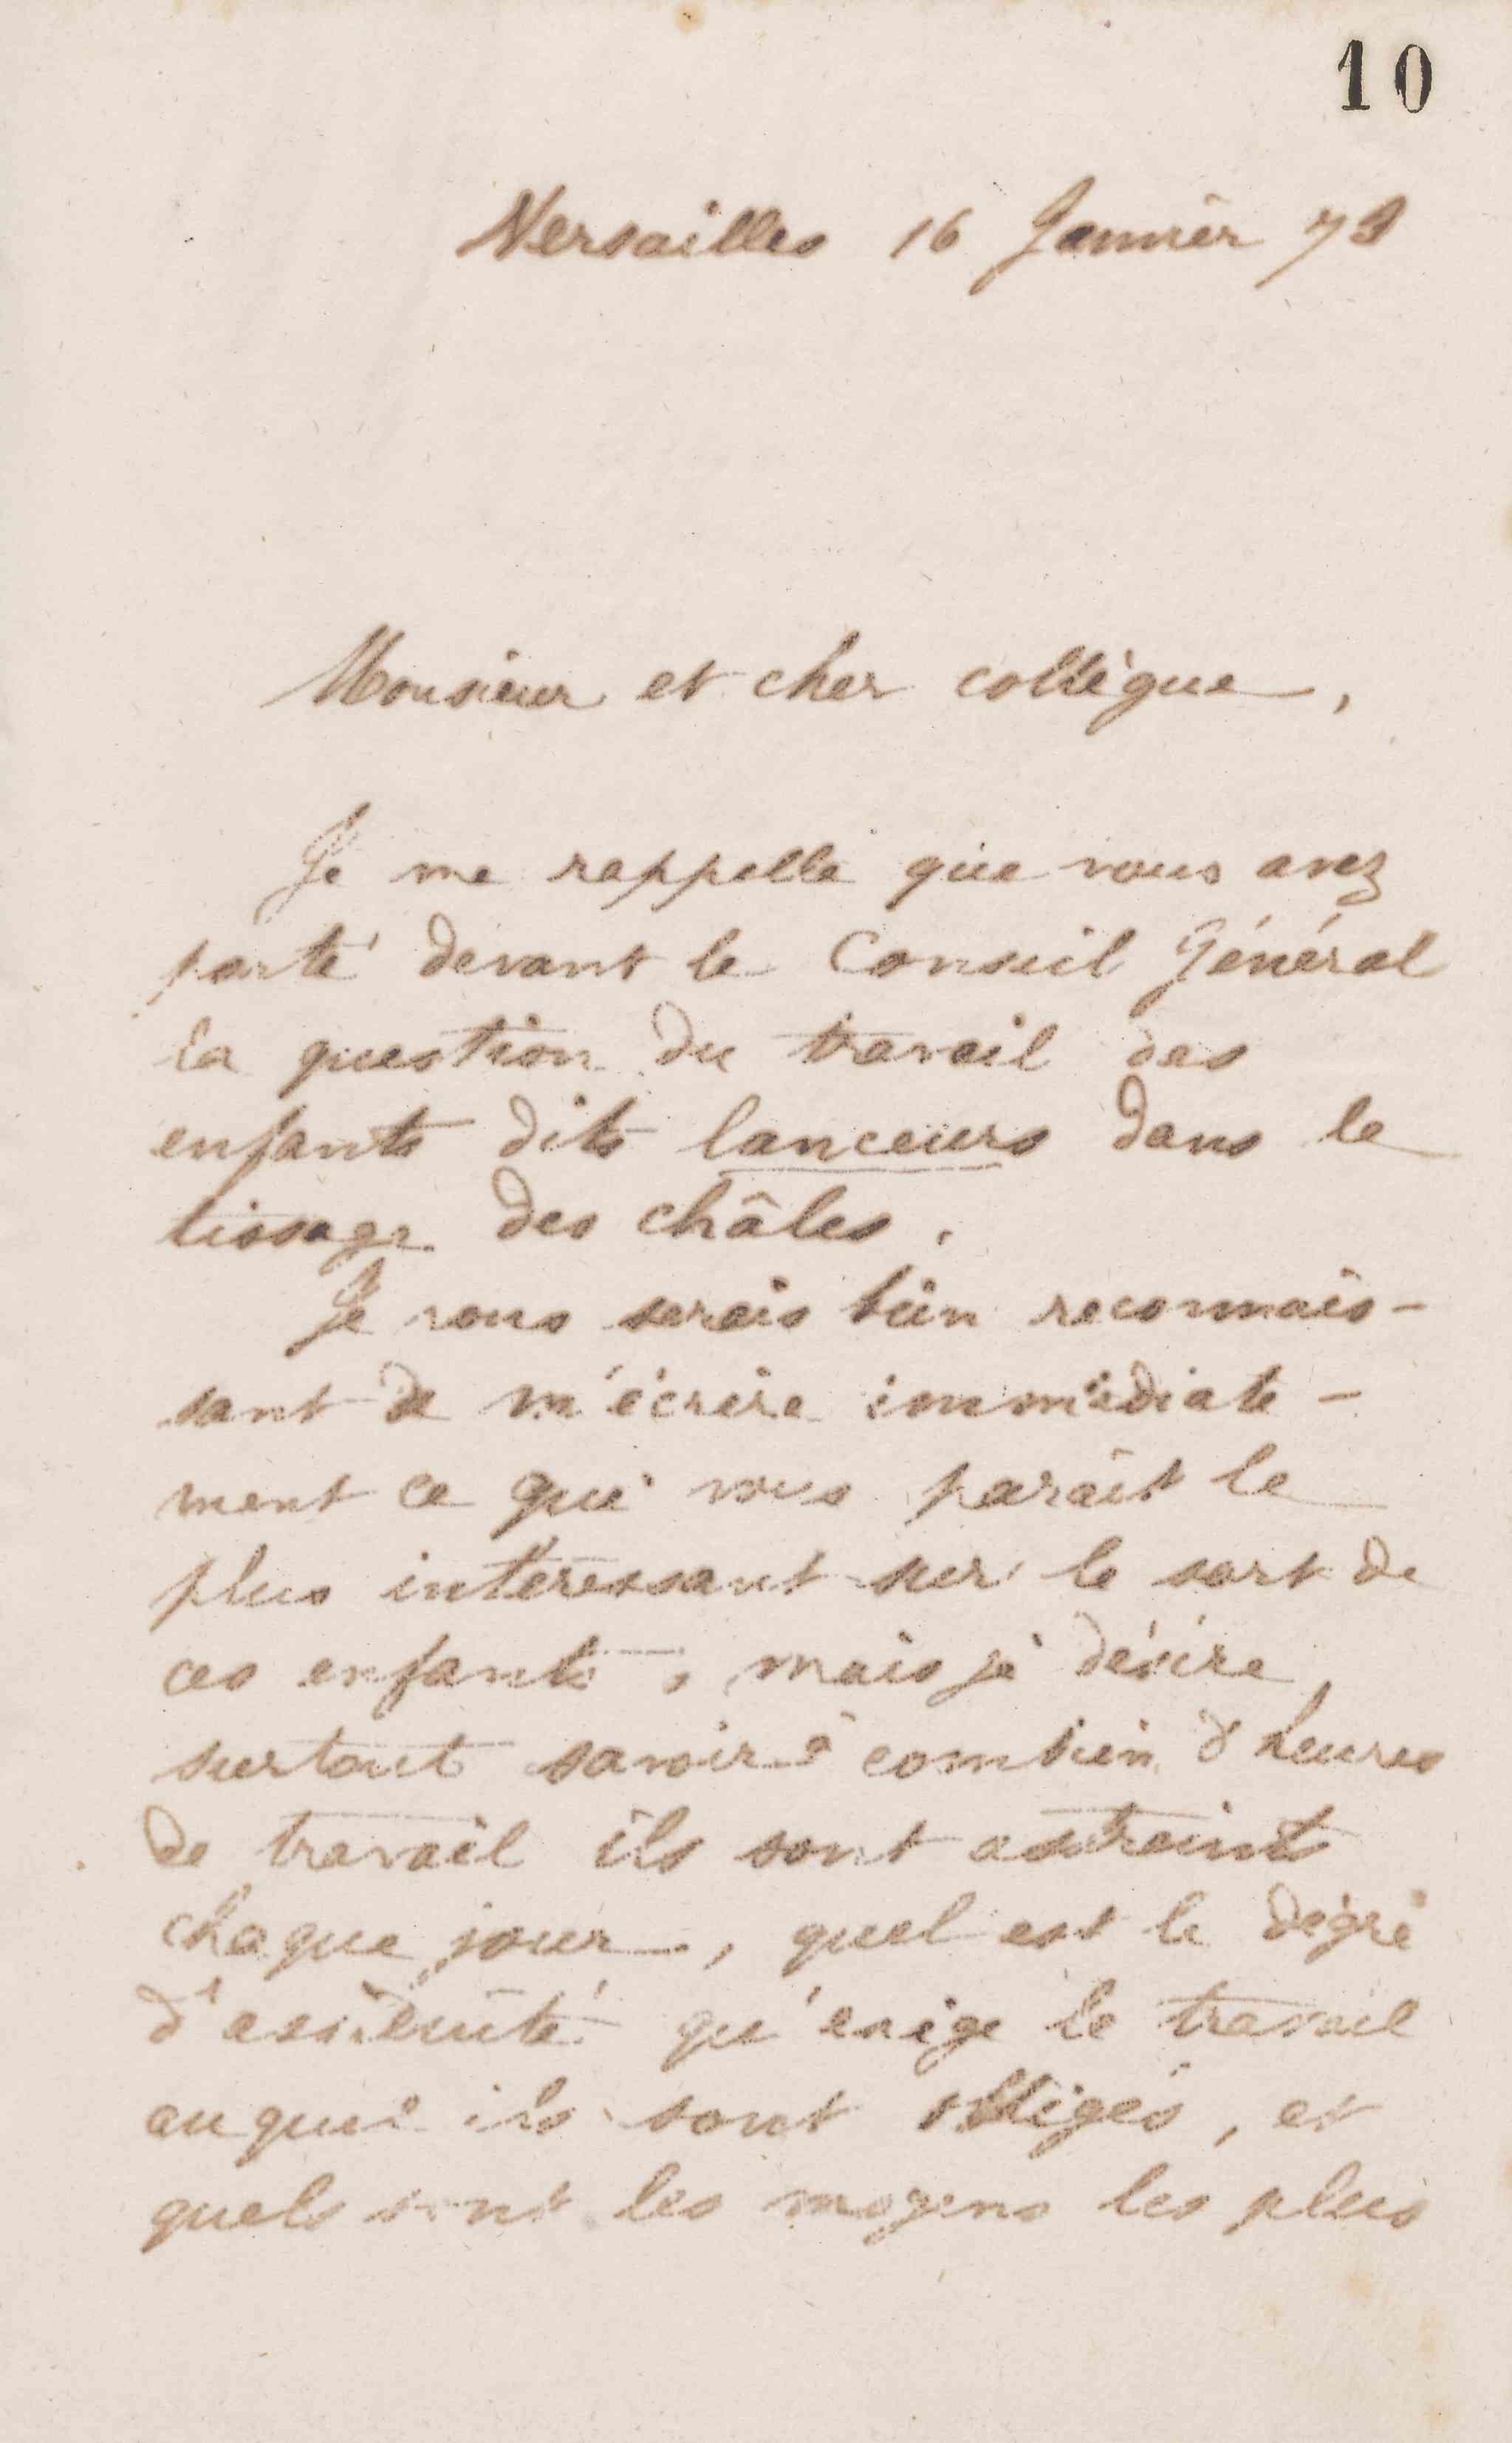 10
Versailles 16 Janvier 73
Monsieur et cher collègue,
Je me rappelle que vous avez
porté devant le Conseil Général
la question du travail des
enfants dits lanceurs dans le
tissage des châles.
Je vous serais bien reconnais-
sant de m'écrire immédiate-
ment ce qui vous paraît le
plus intéressant sur le sort de
ces enfants, mais je désire
surtout savoir à combien d'heures
de travail ils sont astreints
chaque jour, quel est le degré
d'assiduité qu'exige le travail
auquel ils sont obligés, et
quels sont les moyens les plus